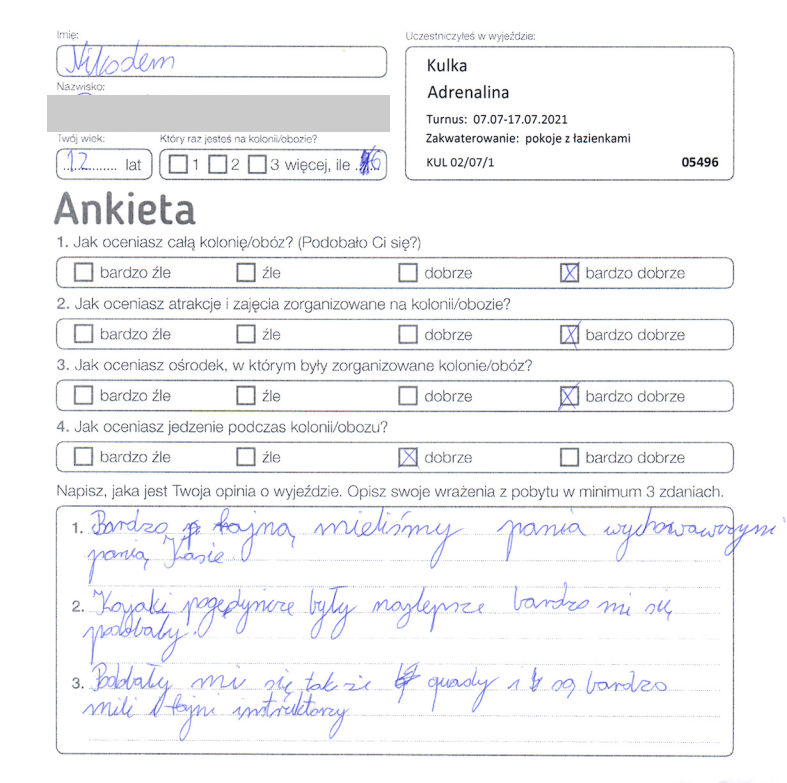 Imię:
Nikodem
Uczestniczyłeś w wyjeździe:
Kulka
Adrenalina
Turnus: 07.07-17.07.2021
Zakwaterowanie: pokoje z łazienkami
KUL 02/07/1 05496
Nazwisko:
Twój wiek:
12 lat
Który raz jesteś na kolonii/obozie?
1 2 3 więcej, ile 6
Ankieta
1. Jak oceniasz całą kolonię/obóz? (Podobało Ci się?)
bardzo źle źle dobrze bardzo dobrze
2. Jak oceniasz atrakcje i zajęcia zorganizowane na kolonii/obozie?
bardzo źle źle dobrze bardzo dobrze
3. Jak oceniasz ośrodek, w którym były zorganizowane kolonie/obóz?
bardzo źle źle dobrze bardzo dobrze
4. Jak oceniasz jedzenie podczas kolonii/obozu?
bardzo źle źle dobrze bardzo dobrze
Napisz, jaka jest Twoja opinia o wyjeździe. Opisz swoje wrażenia z pobytu w minimum 3 zdaniach.
1. Bardzo fajną mieliśmy pania
panią Kasie.
2. Kajaki były najlepsze bardzo mi się
3. mi się także quady i są bardzo
mili i fajni instruktorzy